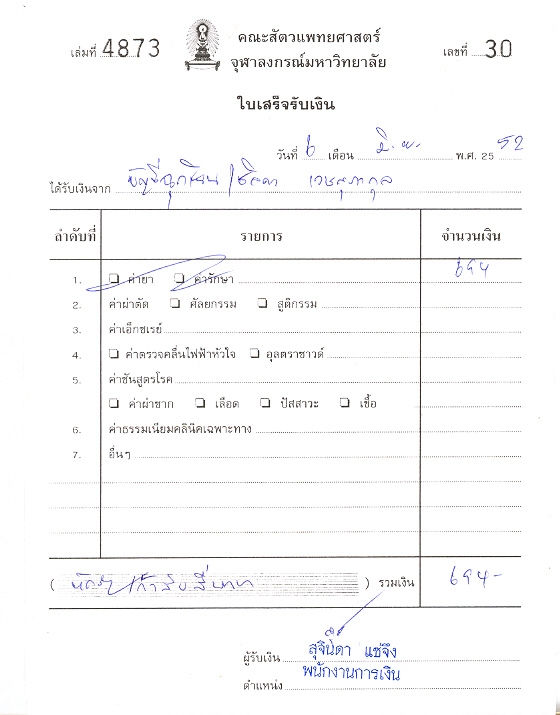 เล่มที่ 4873
คณะสัตวแพทยศาสตร์
จุฬาลงกรณ์มหาวิทยาลัย
เลขที่ 30
ใบเสร็จรับเงิน
วันที่ 6 เดือน มิ.ย. พ.ศ. 25 52
ได้รับเงินจาก
ลำดับที่ รายการ จำนวนเงิน
1. ค่ายา ค่ารักษา 694
2. ค่าผ่าตัด ศัลยกรรม สูติกรรม
3. ค่าเอ็กซเรย์
4. ค่าตรวจคลื่นไฟฟ้าหัวใจ อุลตราซาวด์
5. ค่าชันสูตรโรค
ค่าผ่าซาก เลือด ปัสสาวะ เชื้อ
6. ค่าธรรมเนียมคลินิคเฉพาะทาง
7. อื่นๆ
( เก้าสิบสี่บาท ) รวมเงิน 694-
ผู้รับเงิน สุจินดา แซ่จึง
พนักงานการเงิน
ตำแหน่ง